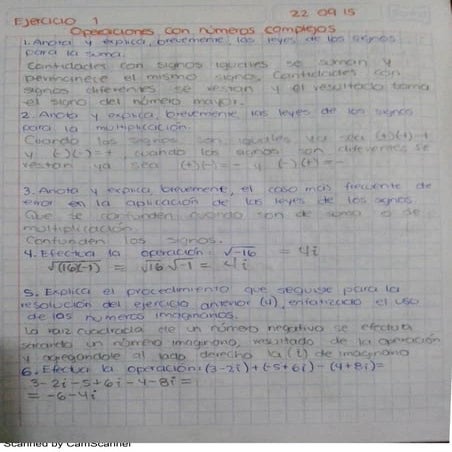 22 09 15
Ejercicio 1
Operaciones con números complejos
1. Anota y explica, brevemente, las leyes de los signos
para la suma.
Cantidades con signos iguales se suman y
el mismo signo, Cantidades con
signos diferentes se restan y el resultado toma
el signo del número mayor.
2. Anota y explica, brevemente, las leyes de los signos
para la multiplicación.
Cuando los signos son iguales ya sea (+)(+)=+
y (-)(-)=+, cuando los signos son diferentes se
restan ya sea (+)(-)=- y (-)(+)=-
3. Anota y explica, brevemente, el caso más frecuente de
error en la aplicación de las leyes de los signos
Que se confunden cuando son de suma o de
multiplicación.
Confunden los signos.
4. Efectua la operación: √-16 = 4i
√(16)(-1) = √16 √-1 = 4i
5. Explica el procedimiento que seguiste para la
resolución del ejercicio anterior (4), enfatizando el uso
de los números imaginarios.
La raiz cuadrada de un número negativo se efectua
sacando un número imaginario, resultado de la operación
y agregandole al lado derecho la (i) de imaginario
6. Efectua la operación: (3-2i)+(-5+6i)-(4+8i)=
3-2i-5+6i-4-8i=
= -6-4i
Scanned by CamScanner